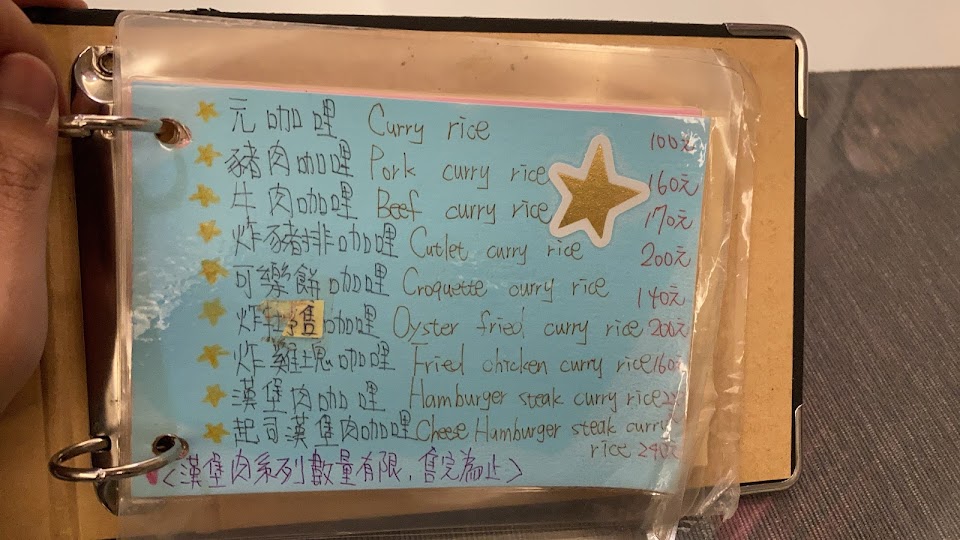 元咖哩 Curry rice 100元
豬肉咖哩 Pork curry rice 160元
牛肉咖哩 Beef curry rice 170元
炸豬排咖哩 Cutlet curry rice 200元
可樂餅咖哩 Croquette curry rice 140元
炸 售 咖哩 Oyster fried curry rice 200元
炸雞塊咖哩 Fried chicken curry rice 160元
漢堡肉咖哩 Hamburger steak curry rice
起司漢堡肉咖哩 Cheese Hamburger steak curry
rice 240元
<漢堡肉系列數量有限，售完為止>